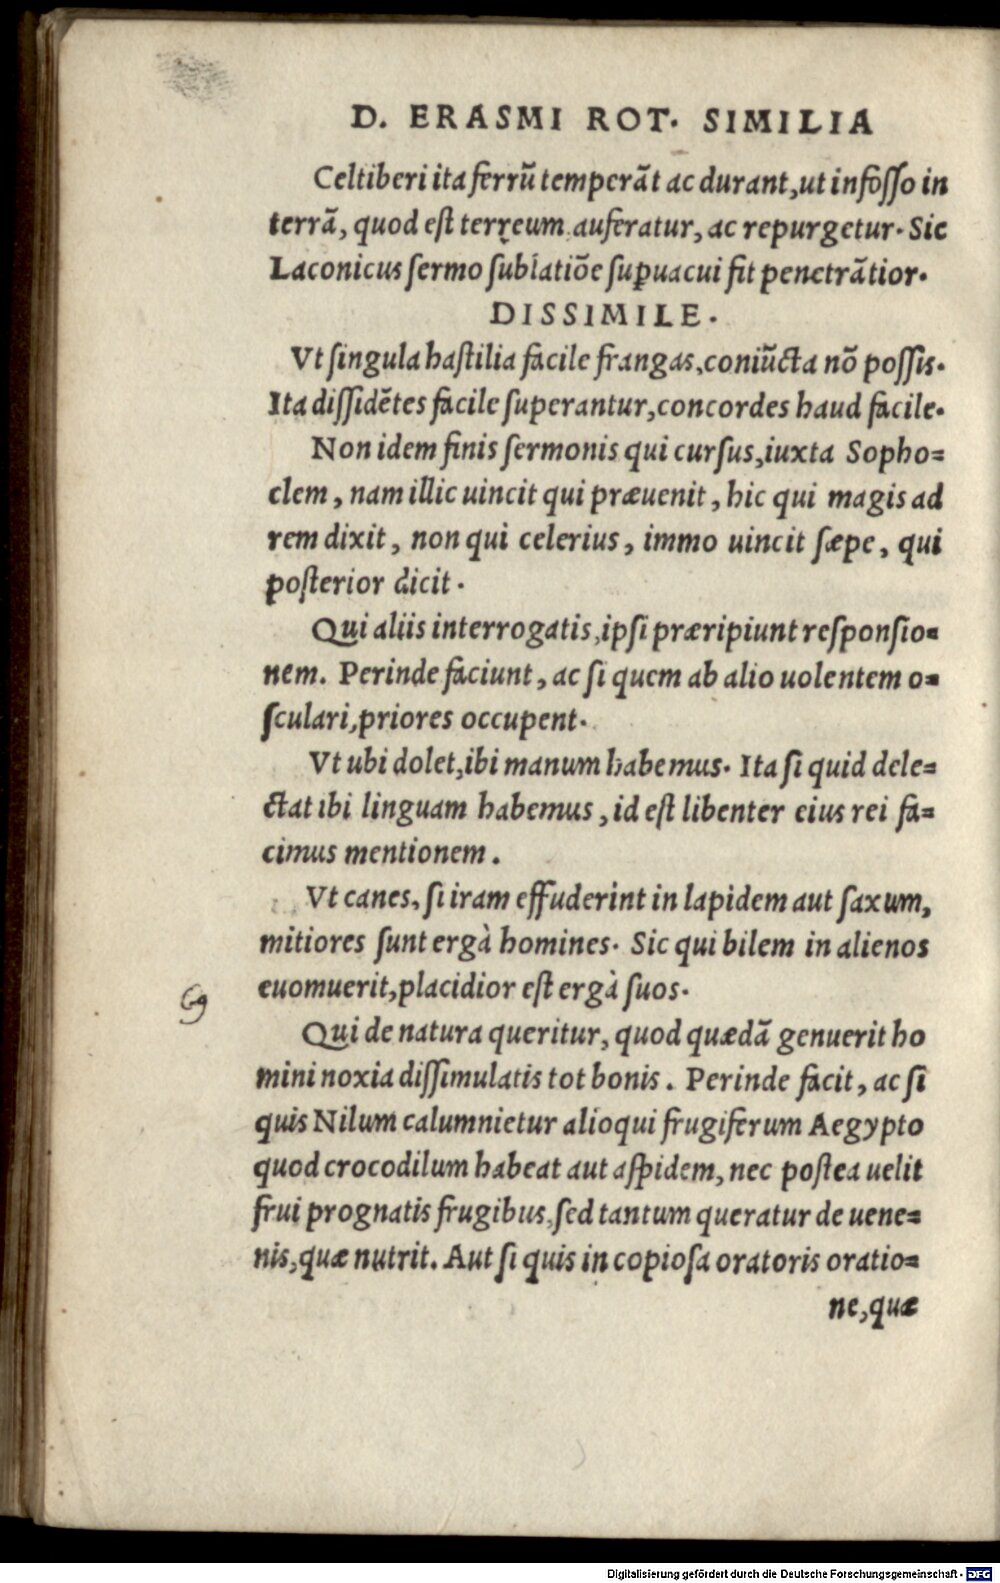 D. ERASMI ROT. SIMILIA
Celtiberi ita ferrũ temperãt ac durant, ut infosso in
terrã, quod est terreum auferatur, ac repurgetur. Sic
Laconicus sermo sublatiõe supuacui fit penetrãtior.
DISSIMILE.
Vt singula hastilia facile frangas, coniũcta nõ possis.
Ita dissidẽtes facile superantur, concordes haud facile.
Non idem finis sermonis qui cursus, iuxta Sopho=
clem, nam illic uincit qui præuenit, hic qui magis ad
rem dixit, non qui celerius, immo uincit sæpe, qui
posterior dicit.
Qui aliis interrogatis, ipsi præripiunt responsio=
nem. Perinde faciunt, ac si quem ab alio uolentem o=
sculari, priores occupent.
Vt ubi dolet, ibi manum habemus. Ita si quid dele=
ctat ibi linguam habemus, id est libenter eius rei fa=
cimus mentionem.
Vt canes, si iram effuderint in lapidem aut saxum,
mitiores sunt ergà homines. Sic qui bilem in alienos
euomuerit, placidior est ergà suos.
Qui de natura queritur, quod quædã genuerit ho
mini noxia dissimulatis tot bonis. Perinde facit, ac si
quis Nilum calumnietur alioqui frugiferum Aegypto
quod crocodilum habeat aut aspidem, nec postea uelit
frui prognatis frugibus, sed tantum queratur de uene=
nis, quæ nutrit. Aut si quis in copiosa oratoris oratio=
ne, quæ
Digitalisierung gefördert durch die Deutsche Forschungsgemeinschaft - DFG